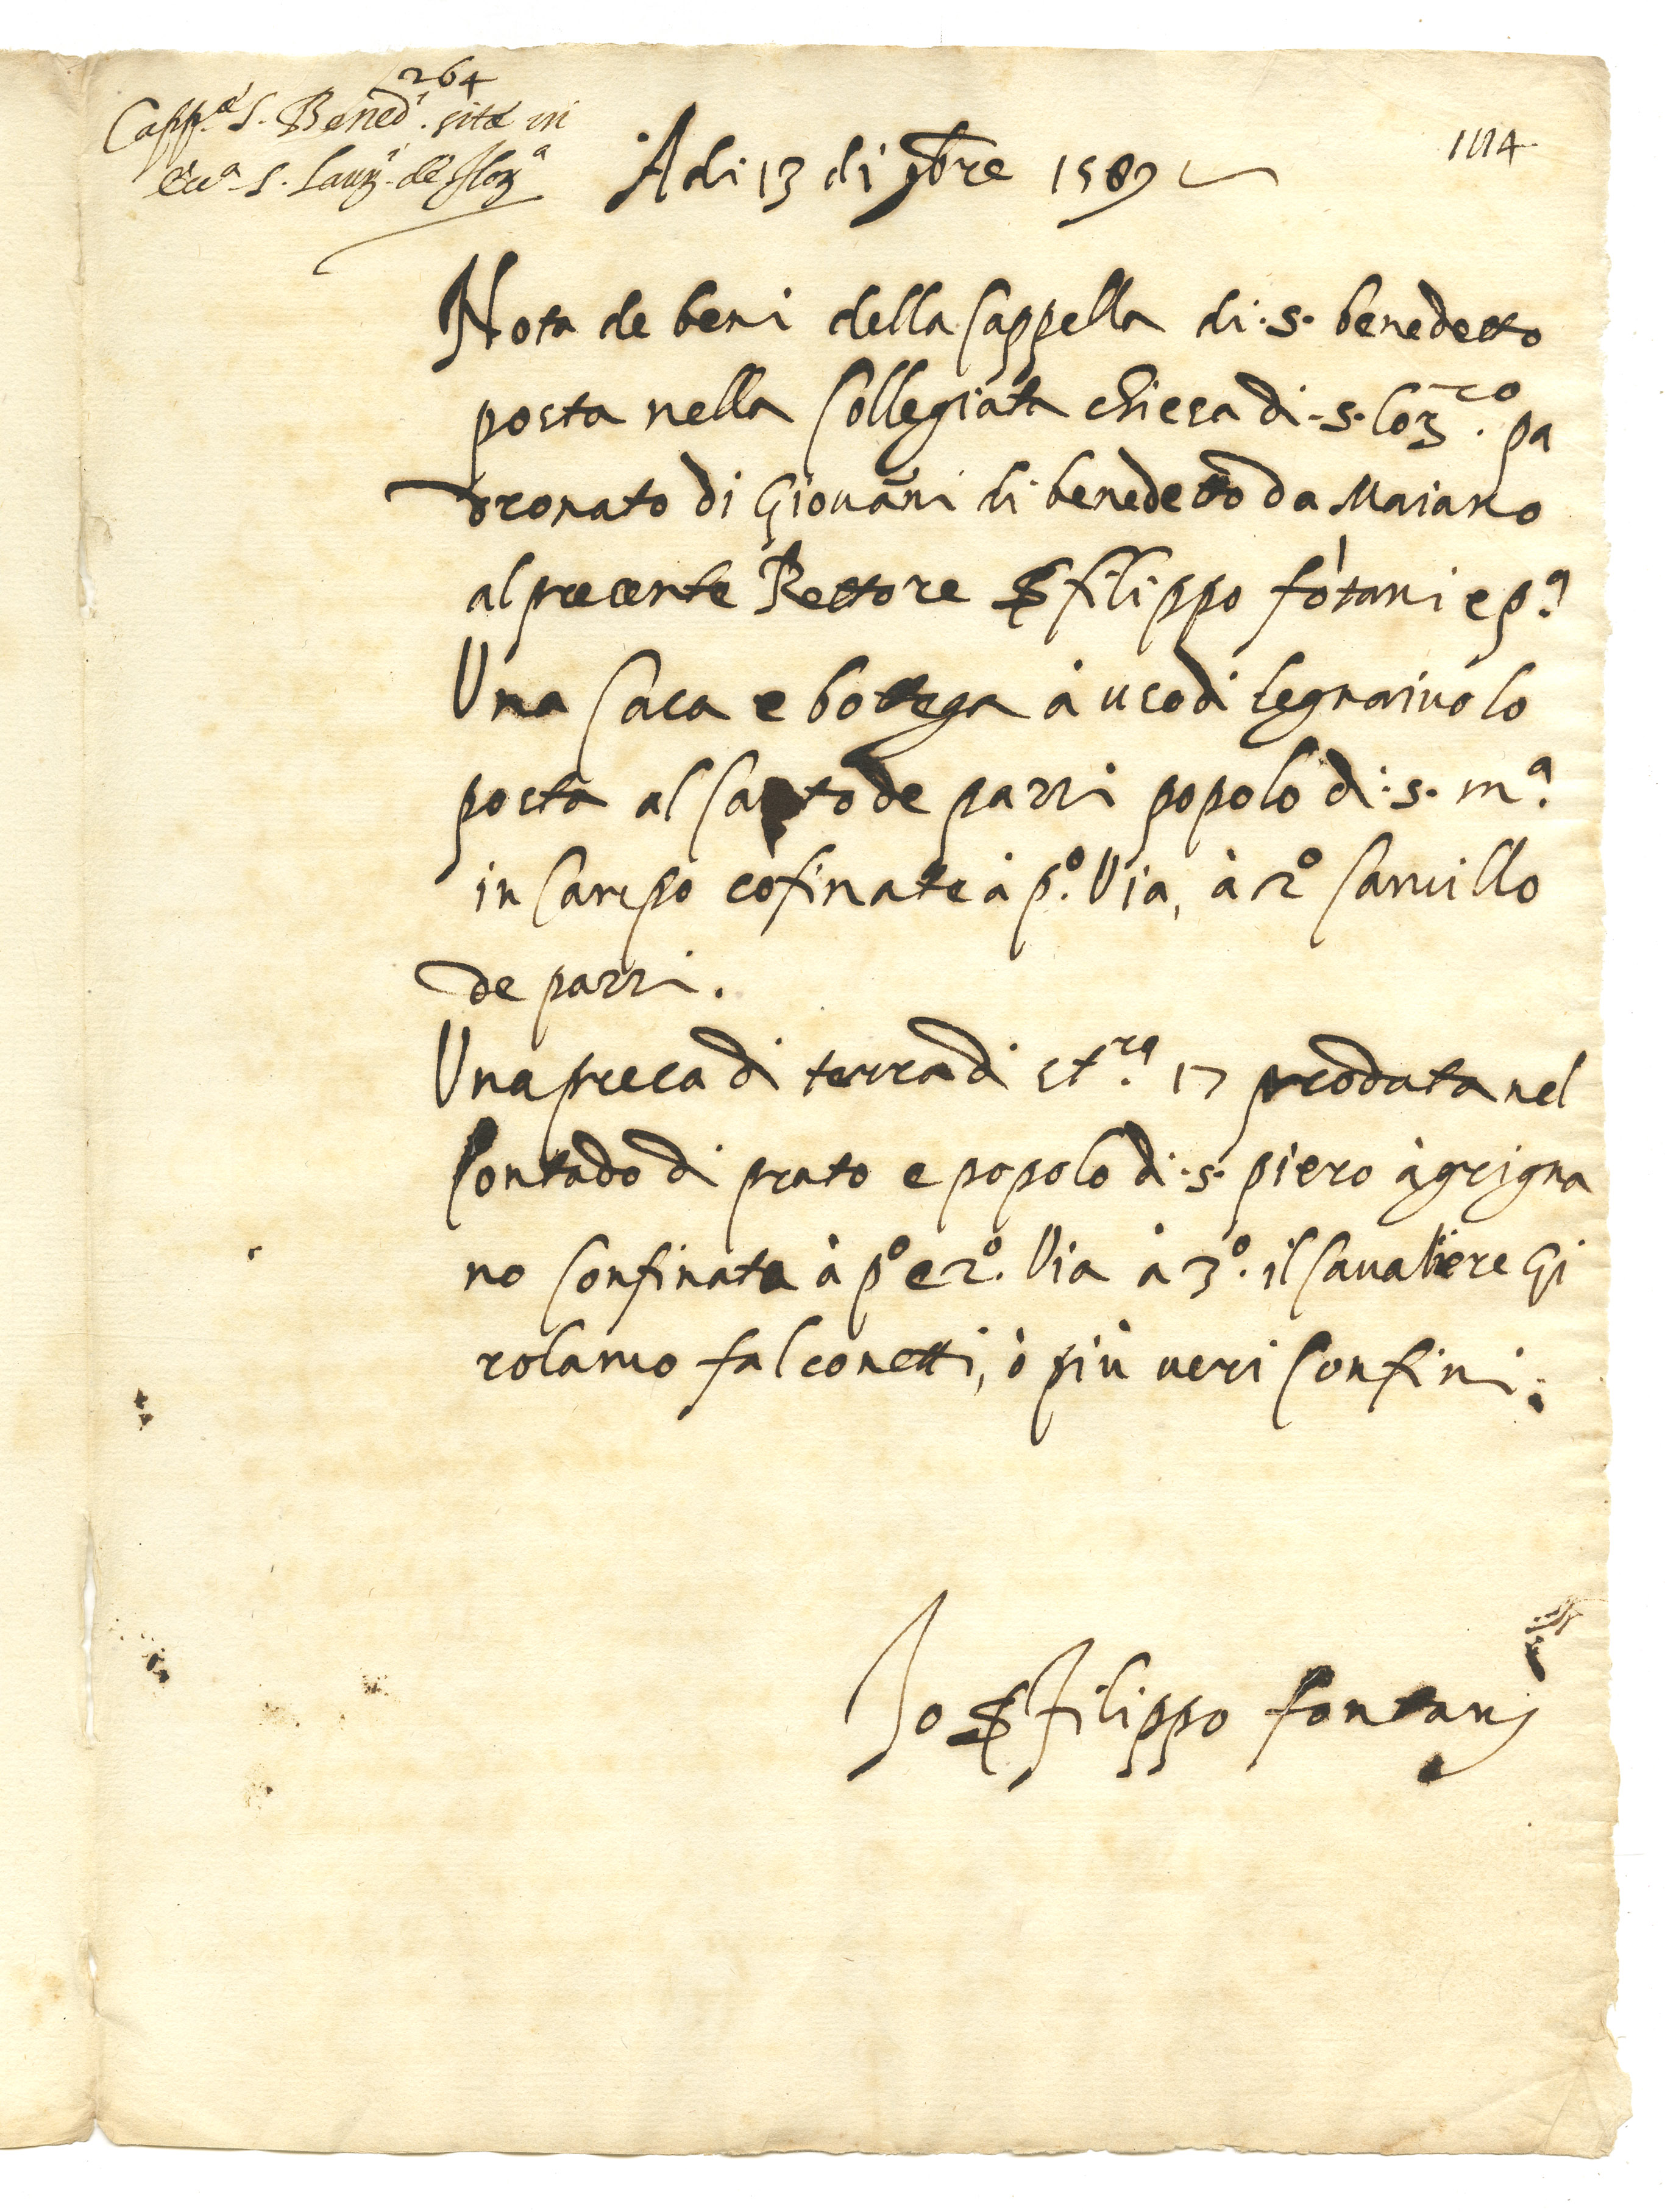 264
Capp.ᵃ S. Bened.ⁱ sita in
S. Laur.ⁱ de Flor.ᵃ
1114
A di 13 di 9bre 1589
Nota de beni della Cappella di .s. benedetto
posta nella Collegiata chiesa di .s. Lor.ᶻᵒ pa
dronato di Giouāni di benedetto da Maiano
al presente Rettore filippo fōtani e p.ᵃ
Una Casa e bottega à uso di legnaiuolo
posta al Canto de pazzi popolo di .s. m.ᵃ
in Campo cōfinata à p.º Via, à 2º Camillo
de pazzi.
Una presa di terra di st.ʳᵃ 17 prodata nel
Contado di prato e popolo di .s. piero à grigna
no Confinata à pº e 2.º Via à 3.º il Caualiere Gi
rolamo falconetti, ò più ueri Confini.
Io filippo fontani